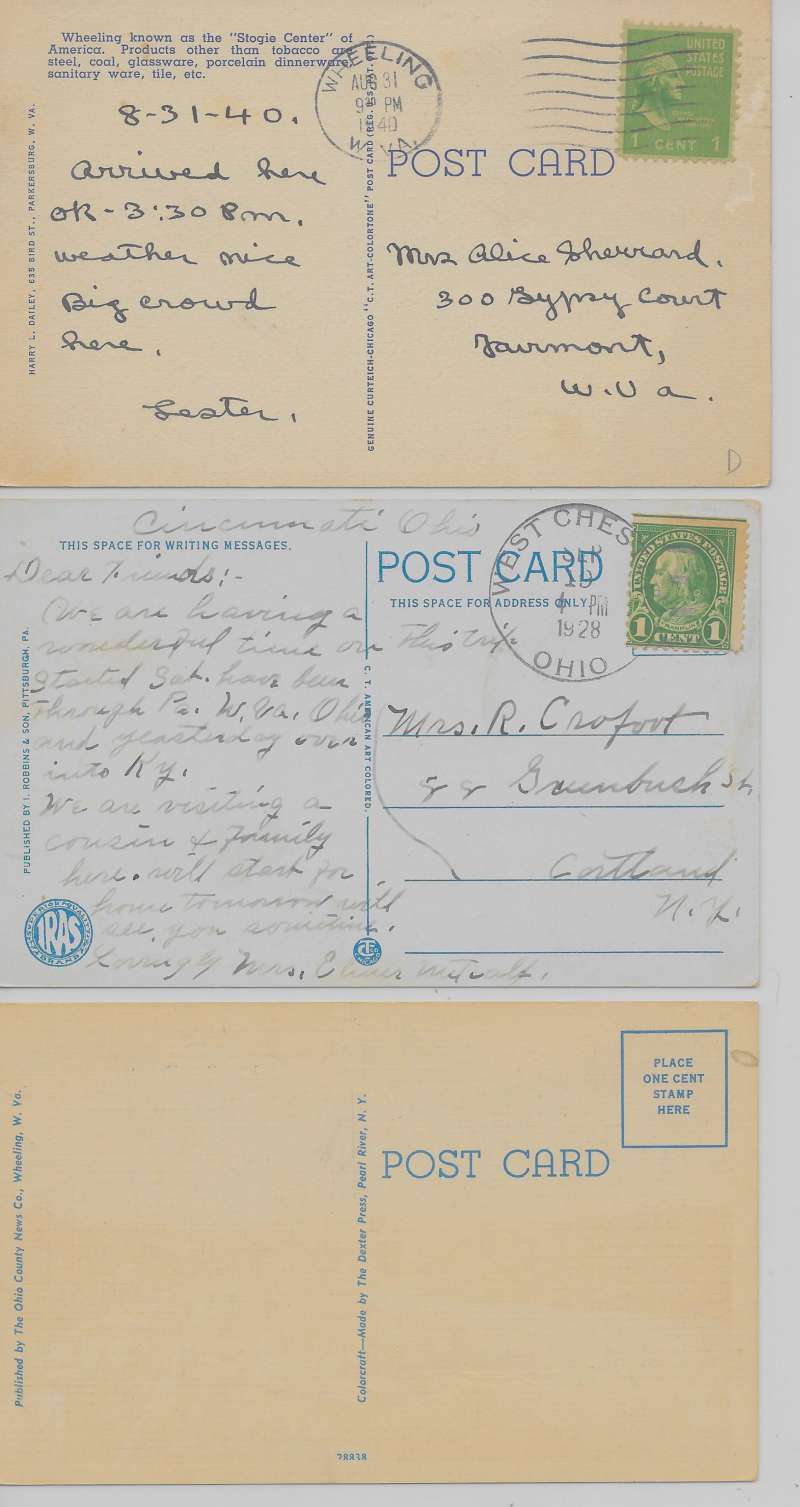 Wheeling known as the "Stogie Center" of
America. Products other than tobacco are
steel, coal, glassware, porcelain dinnerware,
sanitary ware, tile, etc.
8-31-40.
Arrived here
ok - 3:30 Pm.
weather nice
Big crowd
here.
Lester.
HARRY L. DAILEY, 635 BIRD ST., PARKERSBURG, W. VA.
GENUINE CURTEICH-CHICAGO "C.T. ART-COLORTONE" POST CARD (REG. U.S. PAT. OFF.)
WHEELING
AUG 31
PM
1940
W. VA.
UNITED
STATES
POSTAGE
1 CENT 1
POST CARD
Mrs Alice Sherrard.
300 Gypsy Court
Fairmont,
W. Va.
D
Cincinnati Ohio
THIS SPACE FOR WRITING MESSAGES.
Dear Friends:-
We are having a
wonderful time on this trip
Started Sat. have been
through Pa. W. Va. Ohio
and yeasterday over
into Ky.
We are visiting a
cousin & Family
here. will start for
home tomorrow will
see you sometime.
Lovingly Mrs. Elmer Metcalf.
PUBLISHED BY I. ROBBINS & SON, PITTSBURGH, PA.
C. T. AMERICAN ART COLORED.
SUPERIOR QUALITY
IRAS
BRAND
CHICAGO
POST CARD
THIS SPACE FOR ADDRESS ONLY
WEST CHES
SEP
19
PM
1928
OHIO
UNITED STATES POSTAGE
FRANKLIN
1 CENT 1
Mrs. R. Crofoot
Greenbush St.
Cortland
N.Y.
PLACE
ONE CENT
STAMP
HERE
POST CARD
Published by The Ohio County News Co., Wheeling, W. Va.
Colorcraft—Made by The Dexter Press, Pearl River, N. Y.
28838